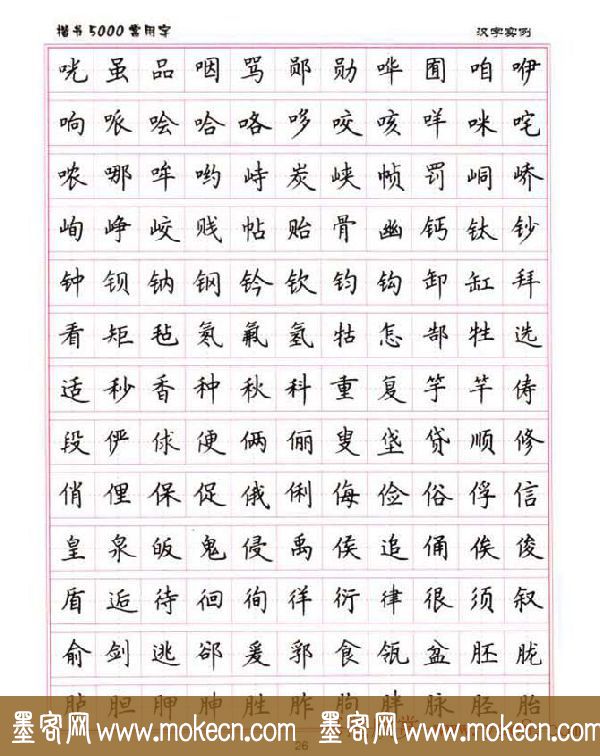 楷书5000常用字 汉字实例
咣虽品咽骂郧勋哗囿咱咿
响哌哙哈咯哆咬咳咩咪咤
哝哪哞哟峙炭峡帧罚峒峤
峋峥峧贱帖贻骨幽钙钛钞
钟钡钠钢钤钦钧钩卸缸拜
看矩毡氡氟氢牯怎郜牲选
适秒香种秋科重复竽竿俦
段俨俅便俩俪叟垡贷顺修
俏俚保促俄俐侮俭俗俘信
皇泉皈鬼侵禹侯追俑俟俊
盾逅待徊徇徉衍律很须叙
俞剑逃郤爰郭食瓴盆胚胧
胪胆胛胂胜胙胸胖脉胫胎
26
墨客网 www.mokecn.com 墨客网 www.mokecn.com